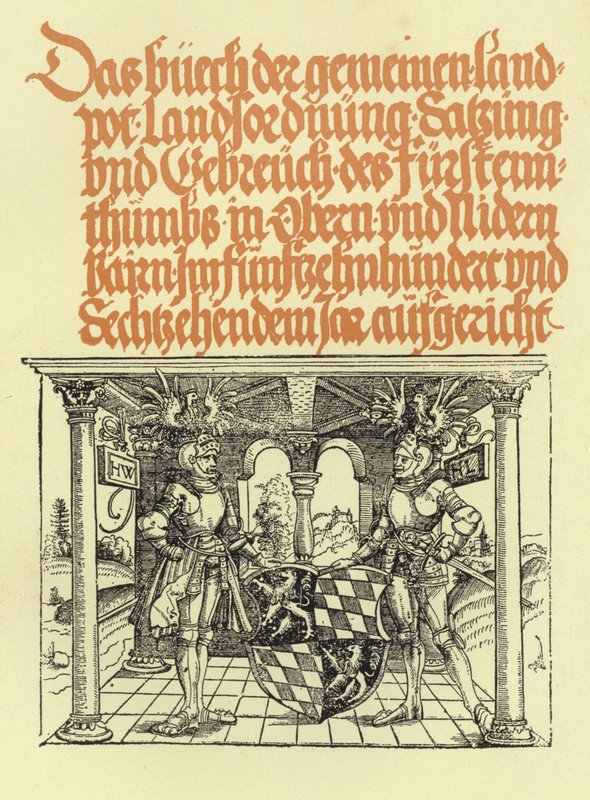 Das büech der gemeinen land-
pot. Landsordnüng. Satzüng.
vnd Gebreüch. des fürstenn-
thümbs in Obern. vnd Nidern
Bairn. Im fünftzehnhündert vnd
Sechtzehendem Jar aufgericht
HW